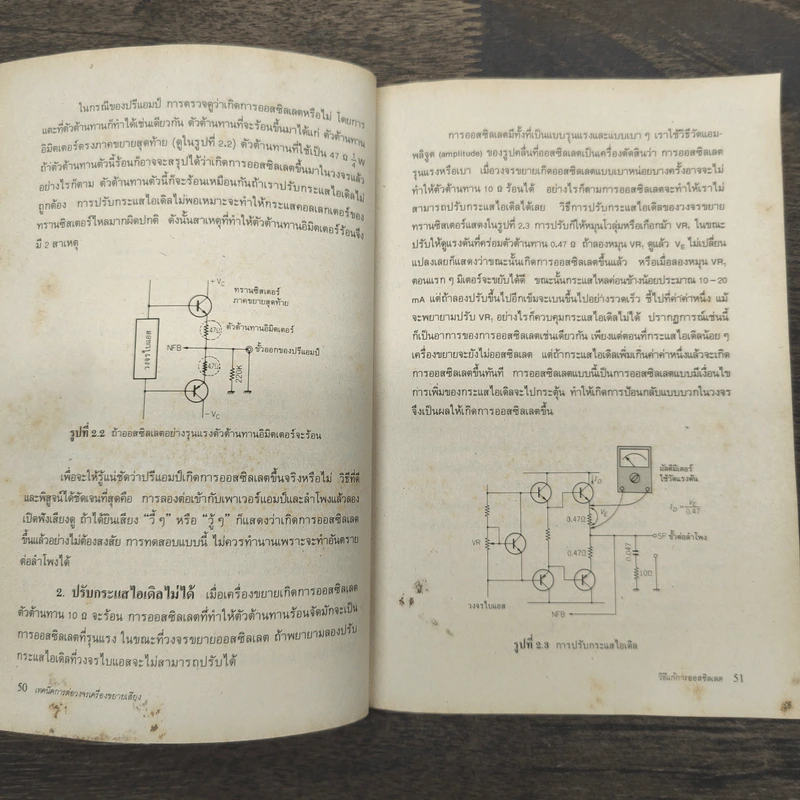 ในกรณีของปรีแอมป์ การตรวจดูว่าเกิดการออสซิลเลตหรือไม่ โดยการ
แตะที่ตัวต้านทานก็ทำได้เช่นเดียวกัน ตัวต้านทานที่จะร้อนขึ้นมาได้แก่ ตัวต้านทาน
อิมิตเตอร์ตรงภาคขยายสุดท้าย (ดูในรูปที่ 2.2) ตัวต้านทานที่ใช้เป็น 47 Ω ¼ W
ถ้าตัวต้านทานตัวนี้ร้อนก็อาจจะสรุปได้ว่าเกิดการออสซิลเลตขึ้นมาในวงจรแล้ว
อย่างไรก็ตาม ตัวต้านทานตัวนี้ก็จะร้อนเหมือนกันถ้าเราปรับกระแสไอเดิลไม่
ถูกต้อง การปรับกระแสไอเดิลไม่พอเหมาะจะทำให้กระแสคอลเลกเตอร์ของ
ทรานซิสเตอร์ไหลมากผิดปกติ ดังนั้นสาเหตุที่ทำให้ตัวต้านทานอิมิตเตอร์ร้อนจึง
มี 2 สาเหตุ
+V_C
ทรานซิสเตอร์
ภาคขยายสุดท้าย
วงจรไบแอส
47Ω
ตัวต้านทานอิมิตเตอร์
NFB
ขั้วออกของปรีแอมป์
47Ω
220K
-V_C
รูปที่ 2.2 ถ้าออสซิลเลตอย่างรุนแรงตัวต้านทานอิมิตเตอร์จะร้อน
เพื่อจะให้รู้แน่ชัดว่าปรีแอมป์เกิดการออสซิลเลตขึ้นจริงหรือไม่ วิธีที่ดี
และพิสูจน์ได้ชัดเจนที่สุดคือ การลองต่อเข้ากับเพาเวอร์แอมป์และลำโพงแล้วลอง
เปิดฟังเสียงดู ถ้าได้ยินเสียง “วี้ ๆ” หรือ “วู้ ๆ” ก็แสดงว่าเกิดการออสซิลเลต
ขึ้นแล้วอย่างไม่ต้องสงสัย การทดสอบแบบนี้ ไม่ควรทำนานเพราะจะทำอันตราย
ต่อลำโพงได้
2. ปรับกระแสไอเดิลไม่ได้ เมื่อเครื่องขยายเกิดการออสซิลเลต
ตัวต้านทาน 10 Ω จะร้อน การออสซิลเลตที่ทำให้ตัวต้านทานร้อนจัดมักจะเป็น
การออสซิลเลตที่รุนแรง ในขณะที่วงจรขยายออสซิลเลต ถ้าพยายามลองปรับ
กระแสไอเดิลที่วงจรไบแอสจะไม่สามารถปรับได้
50 เทคนิคการต่อวงจรเครื่องขยายเสียง
การออสซิลเลตมีทั้งที่เป็นแบบรุนแรงและแบบเบา ๆ เราใช้วิธีวัดแอม-
พลิจูด (amplitude) ของรูปคลื่นที่ออสซิลเลตเป็นเครื่องตัดสินว่า การออสซิลเลต
รุนแรงหรือเบา เมื่อวงจรขยายเกิดออสซิลเลตแบบเบาหน่อยบางครั้งอาจจะไม่
ทำให้ตัวต้านทาน 10 Ω ร้อนได้ อย่างไรก็ตามการออสซิลเลตจะทำให้เราไม่
สามารถปรับกระแสไอเดิลได้เลย วิธีการปรับกระแสไอเดิลของวงจรขยาย
ทรานซิสเตอร์แสดงในรูปที่ 2.3 การปรับก็ให้หมุนโวลุ่มหรือเกือกม้า VR₁ ในขณะ
ปรับให้ดูแรงดันที่คร่อมตัวต้านทาน 0.47 Ω ถ้าลองหมุน VR₁ ดูแล้ว V_E ไม่เปลี่ยน
แปลงเลยก็แสดงว่าขณะนั้นเกิดการออสซิลเลตขึ้นแล้ว หรือเมื่อลองหมุน VR₁
ตอนแรก ๆ มิเตอร์จะขยับได้ดี ขณะนั้นกระแสไหลค่อนข้างน้อยประมาณ 10 – 20
mA แต่ถ้าลองปรับขึ้นไปอีกเข็มจะเบนขึ้นไปอย่างรวดเร็ว ชี้ไปที่ค่าค่าหนึ่ง แม้
จะพยายามปรับ VR₁ อย่างไรก็ควบคุมกระแสไอเดิลไม่ได้ ปรากฏการณ์เช่นนี้
ก็เป็นอาการของการออสซิลเลตเช่นเดียวกัน เพียงแต่ตอนที่กระแสไอเดิลน้อย ๆ
เครื่องขยายจะยังไม่ออสซิลเลต แต่ถ้ากระแสไอเดิลเพิ่มเกินค่าค่าหนึ่งแล้วจะเกิด
การออสซิลเลตขึ้นทันที การออสซิลเลตแบบนี้เป็นการออสซิลเลตแบบมีเงื่อนไข
การเพิ่มของกระแสไอเดิลจะไปกระตุ้น ทำให้เกิดการป้อนกลับแบบบวกในวงจร
จึงเป็นผลให้เกิดการออสซิลเลตขึ้น
มัลติมิเตอร์
ใช้วัดแรงดัน
I_D
V_E
I_D = V_E/0.47
0.47Ω
VR
0.47Ω
SP ขั้วต่อลำโพง
0.047
10Ω
วงจรไบแอส
NFB
รูปที่ 2.3 การปรับกระแสไอเดิล
วิธีแก้การออสซิลเลต 51